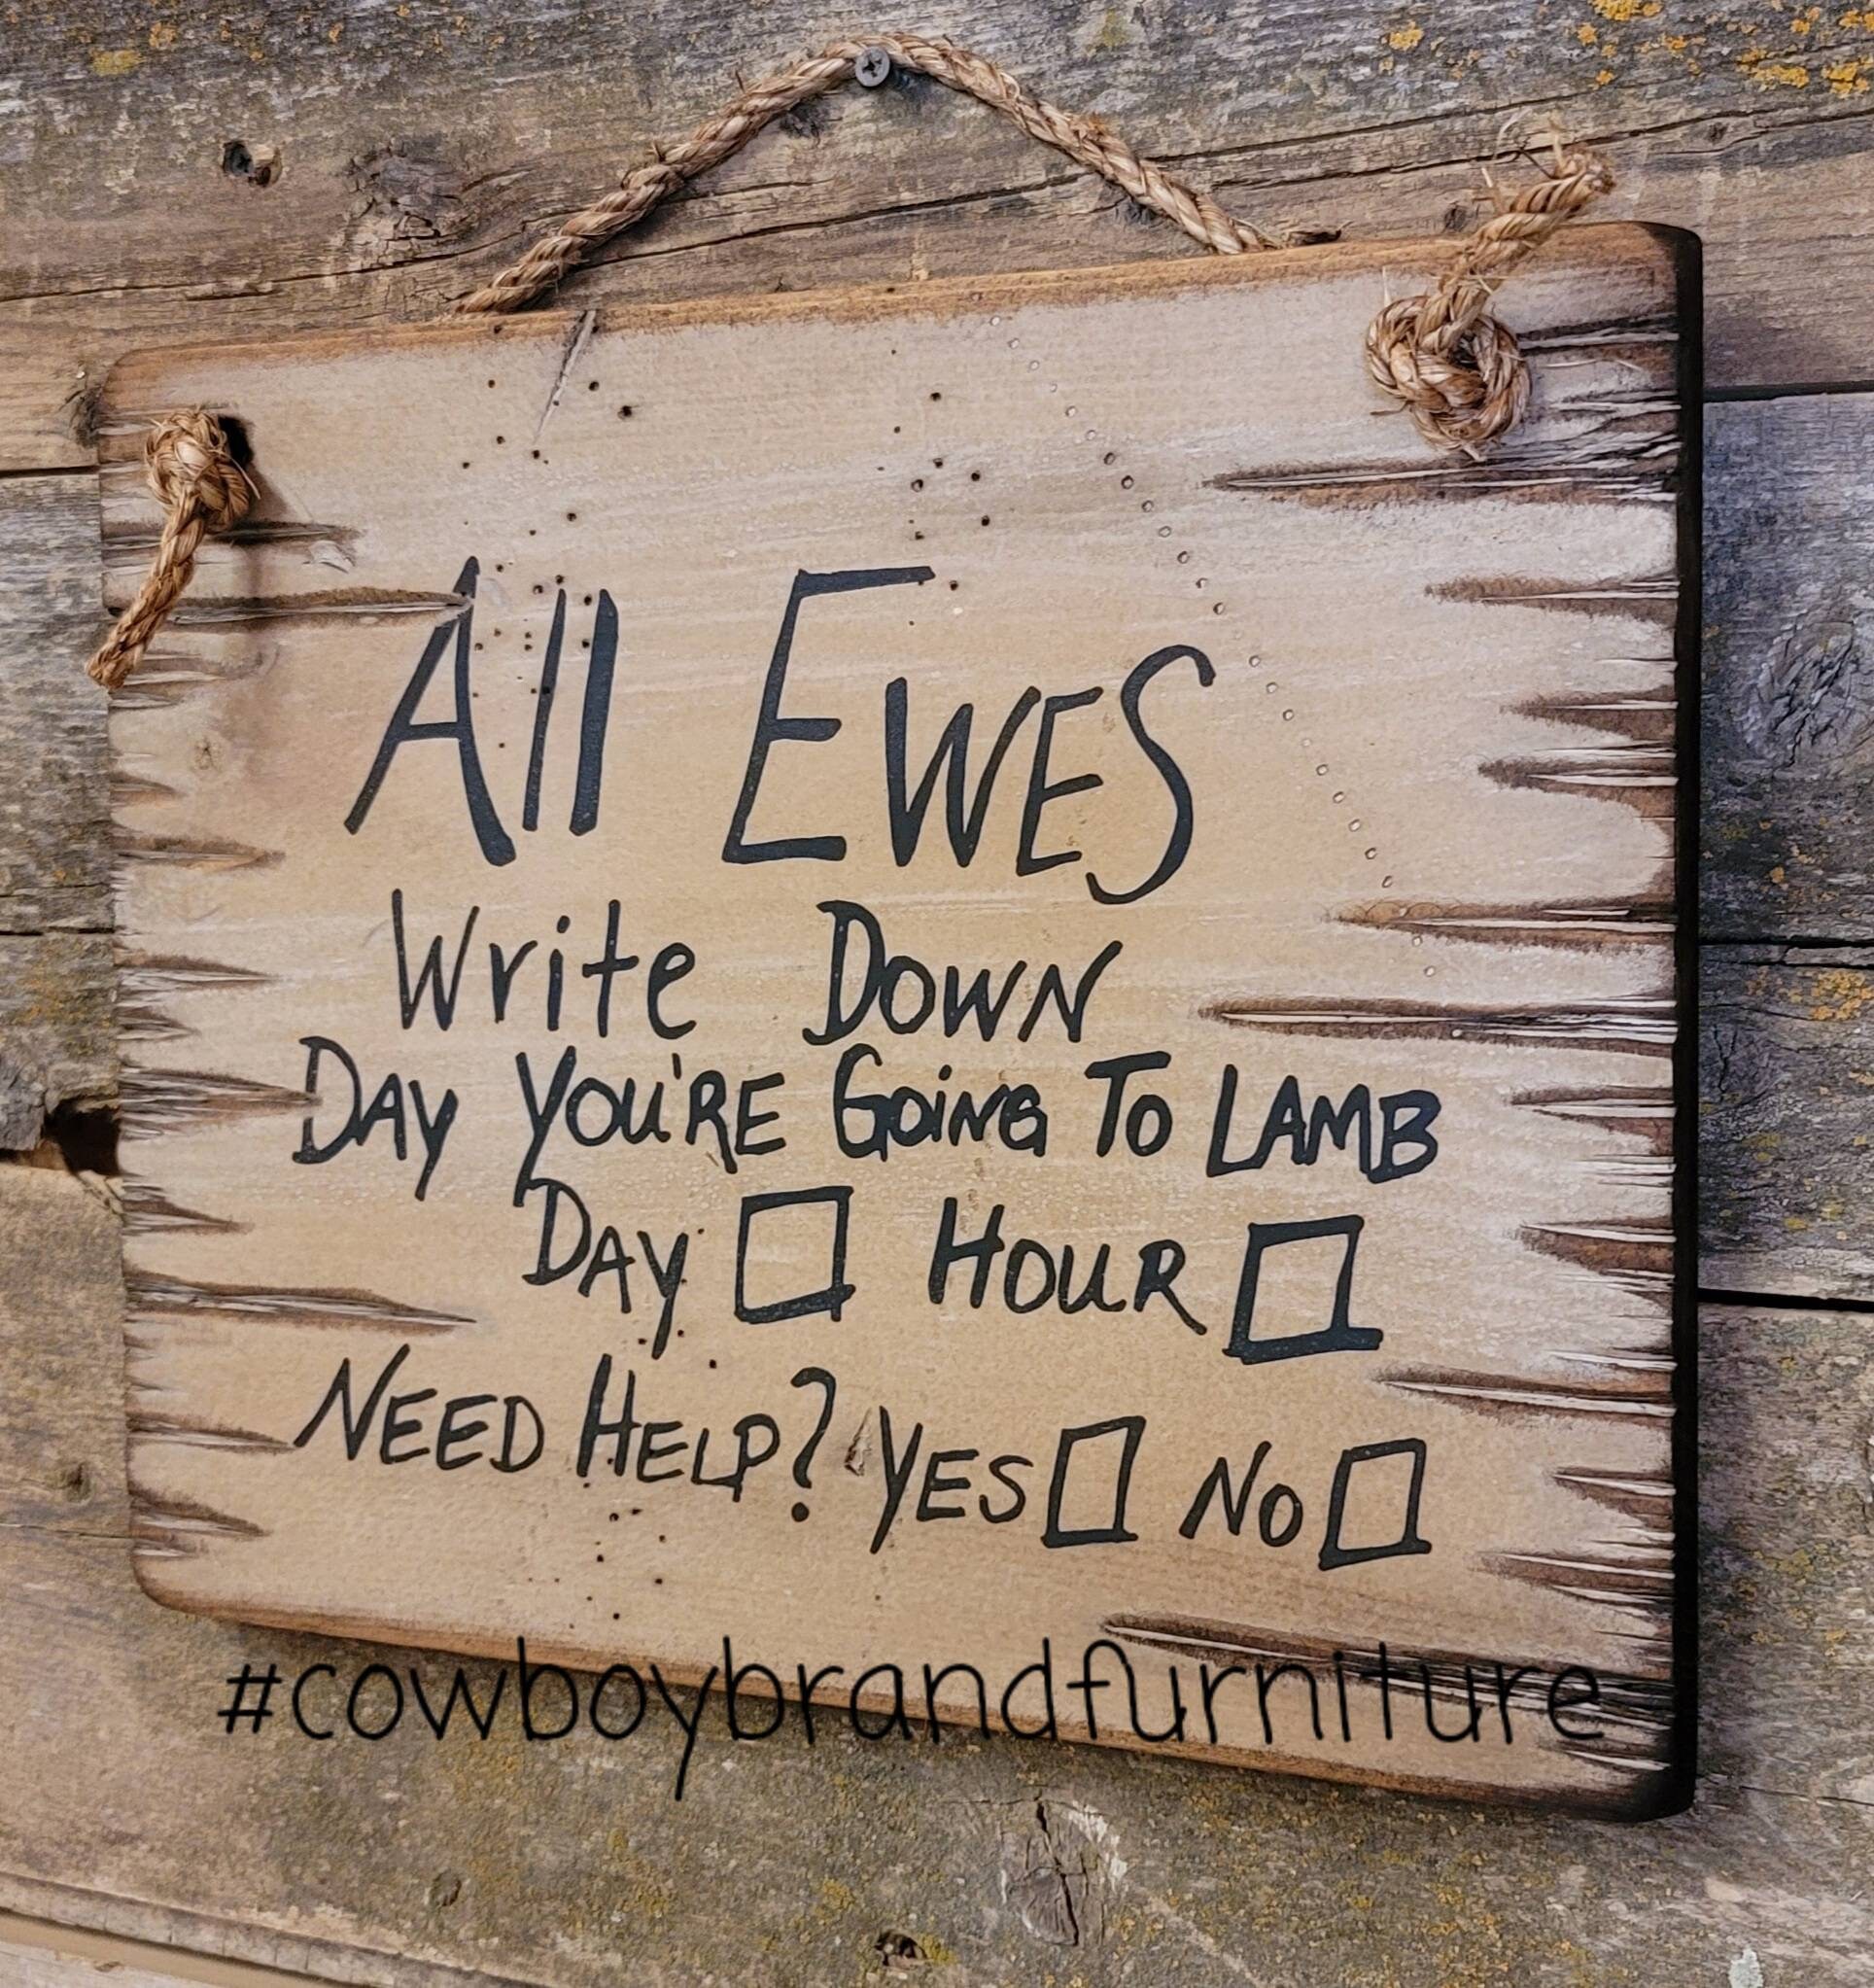 All EWES
Write DOWN
DAY YOU'RE GOiNG TO LAMB
DAY □ HOUR □
NEED HELP? YES □ NO □
#cowboybrandfurniture